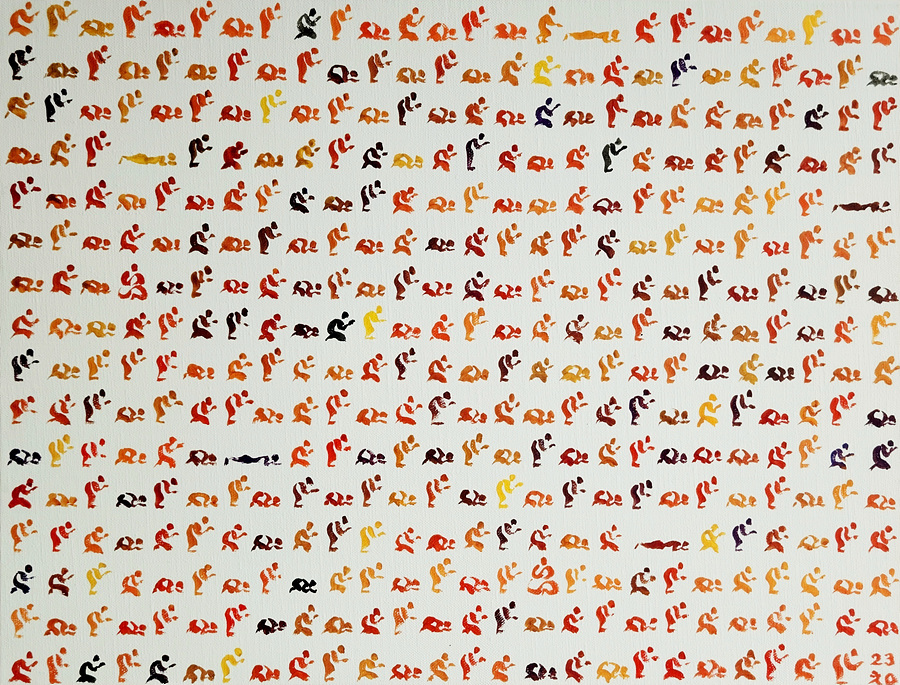 23
20